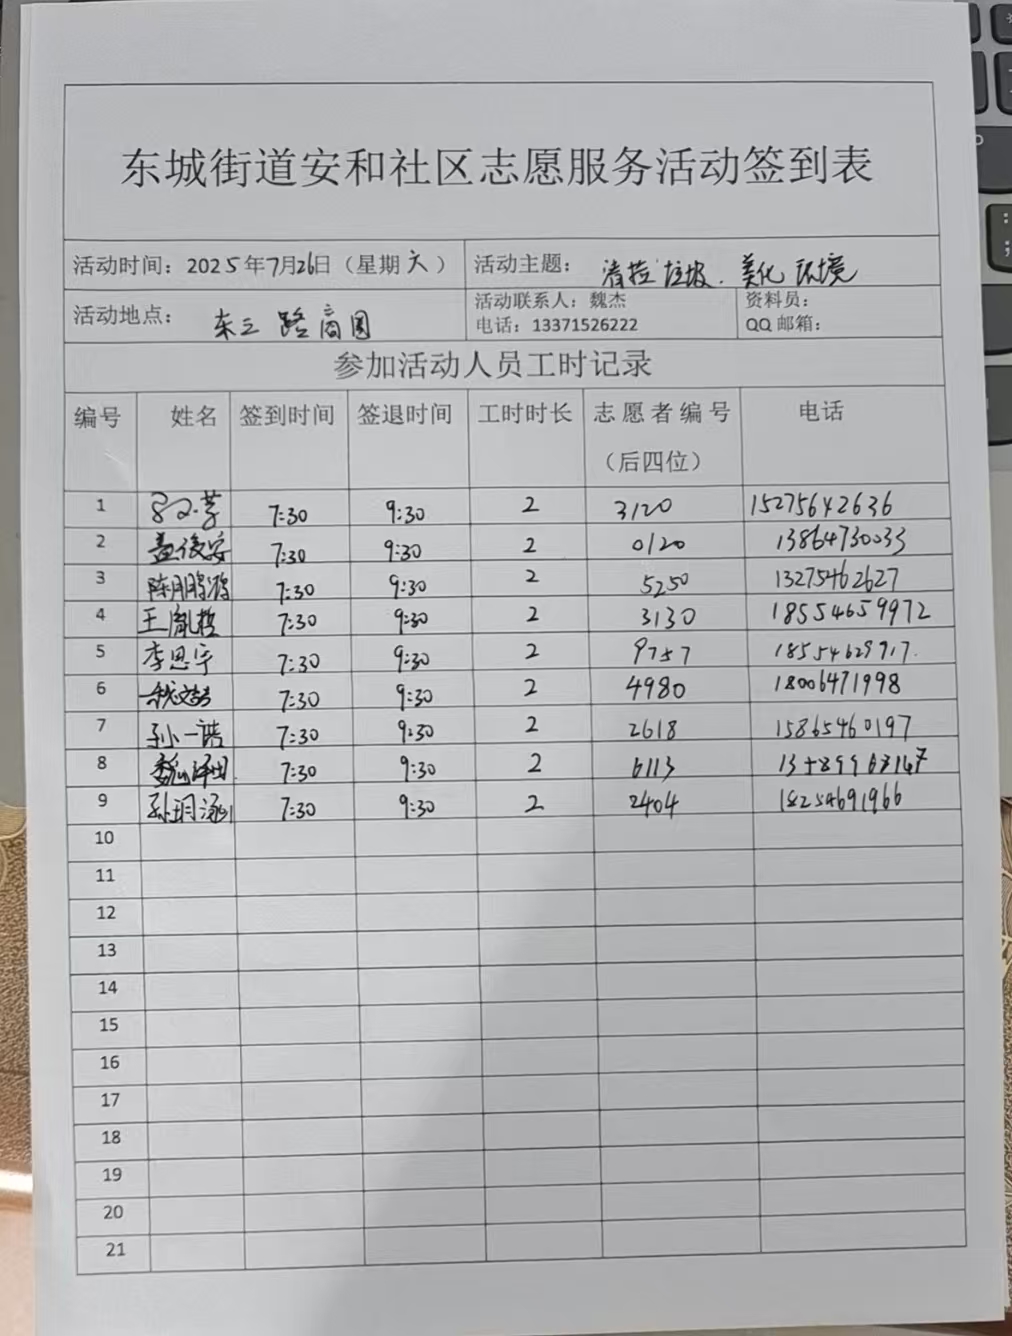 东城街道安和社区志愿服务活动签到表
活动时间：2025年7月26日（星期六） 活动主题：清捡垃圾.美化环境
活动地点：东三路商圈 活动联系人：魏杰 电话：13371526222 资料员： QQ邮箱：
参加活动人员工时记录
编号 姓名 签到时间 签退时间 工时时长 志愿者编号（后四位） 电话
1 7:30 9:30 2 3120 15275642636
2 盖俊安 7:30 9:30 2 0120 13864730033
3 陈鹏 7:30 9:30 2 5250 13275462627
4 王胤哲 7:30 9:30 2 3130 18554659972
5 李恩宇 7:30 9:30 2 9757 18554629717.
6 7:30 9:30 2 4980 18006471998
7 孙一诺 7:30 9:30 2 2618 15865460197
8 7:30 9:30 2 6113
9 孙玥涵 7:30 9:30 2 2404 18254691966
10
11
12
13
14
15
16
17
18
19
20
21